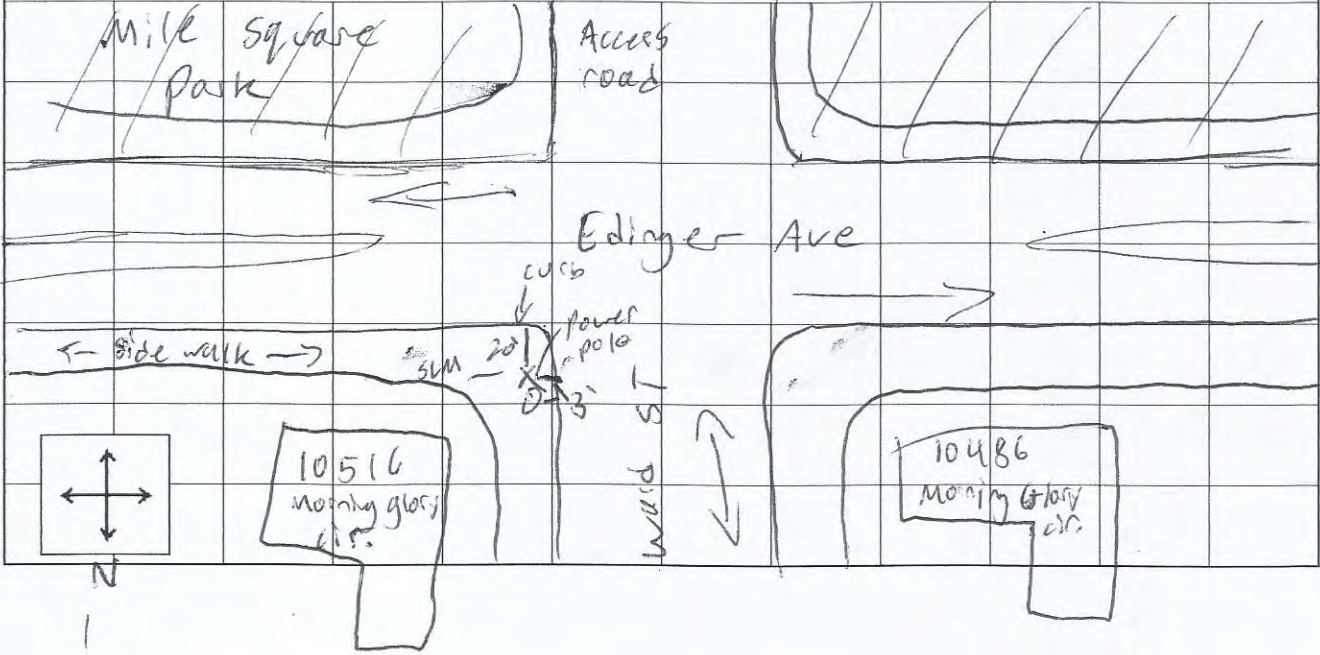 Mile Square
Park
Access
road
Edinger Ave
curb
power
pole
← Side walk →
SLM
20'
3'
Ward ST
10516
Morning glory
cir.
10486
Morning Glory
cir.
N